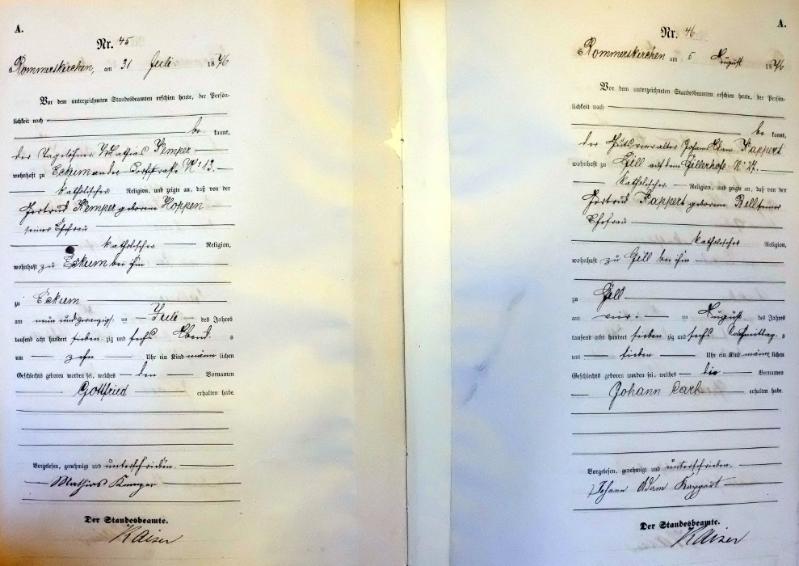 A.
Nr. 45
Rommerskirchen, am 31 Juli 1876
Vor dem unterzeichneten Standesbeamten erschien heute, der Persön-
lichkeit nach
be kannt,
der Tagelöhner Mathias Kemper
wohnhaft zu Eckum an der Dorfstraße No 13.
katholischer Religion, und zeigte an, daß von der
Gertrud Kemper geborene Hoppen
seiner Ehefrau
katholischer Religion,
wohnhaft zu Eckum bei ihm
zu Eckum
am neun und zwanzigsten Juli des Jahres
tausend acht hundert sieben zig und sechs Abends
um zehn Uhr ein Kind männ lichen
Geschlechts geboren worden sei, welches den Vornamen
Gottfried erhalten habe.
Vorgelesen, genehmigt und unterschrieben.
Mathias Kemper
Der Standesbeamte.
Kaiser
A.
Nr. 46
Rommerskirchen am 5 August 1876
Vor dem unterzeichneten Standesbeamten erschien heute, der Persön-
lichkeit nach
be kannt,
der Gutsverwalter Johann Adam Kappert
wohnhaft zu Gill auf dem Gillerhofe No
katholischer Religion, und zeigte an, daß von der
Gertrud Kappert geborene
Ehefrau
katholischer Religion,
wohnhaft zu Gill bei ihm
zu Gill
am vier August des Jahres
tausend acht hundert sieben zig und sechs Nachmittag s
um sieben Uhr ein Kind männ lichen
Geschlechts geboren worden sei, welches die Vornamen
Johann Carl erhalten habe.
Vorgelesen, genehmigt und unterschrieben.
Johann Adam Kappert
Der Standesbeamte.
Kaiser